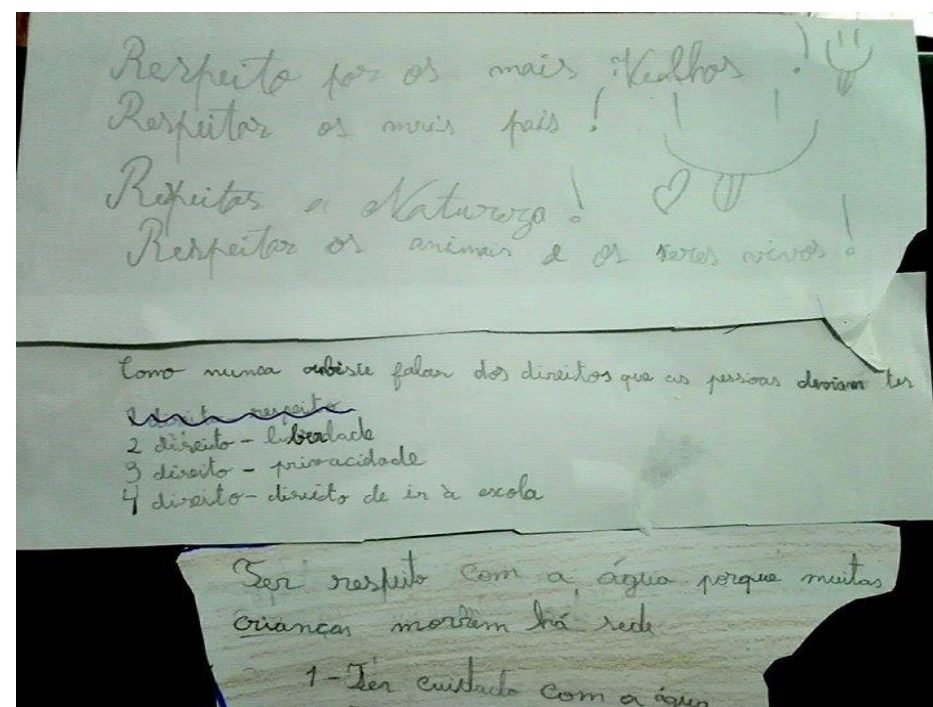 Respeito por os mais Velhos !
Respeitar os meis pais !
Respeitar a Natureza !
Respeitar os animais e os seres vivos !
Como nunca oubiste falar dos direitos que as pessoas deviam ter
1 direito respeito
2 direito - liberdade
3 direito - privacidade
4 direito - direito de ir à escola
Ter respeito com a água porque muitas
crianças morrem há sede
1 - Ter cuidado com a água